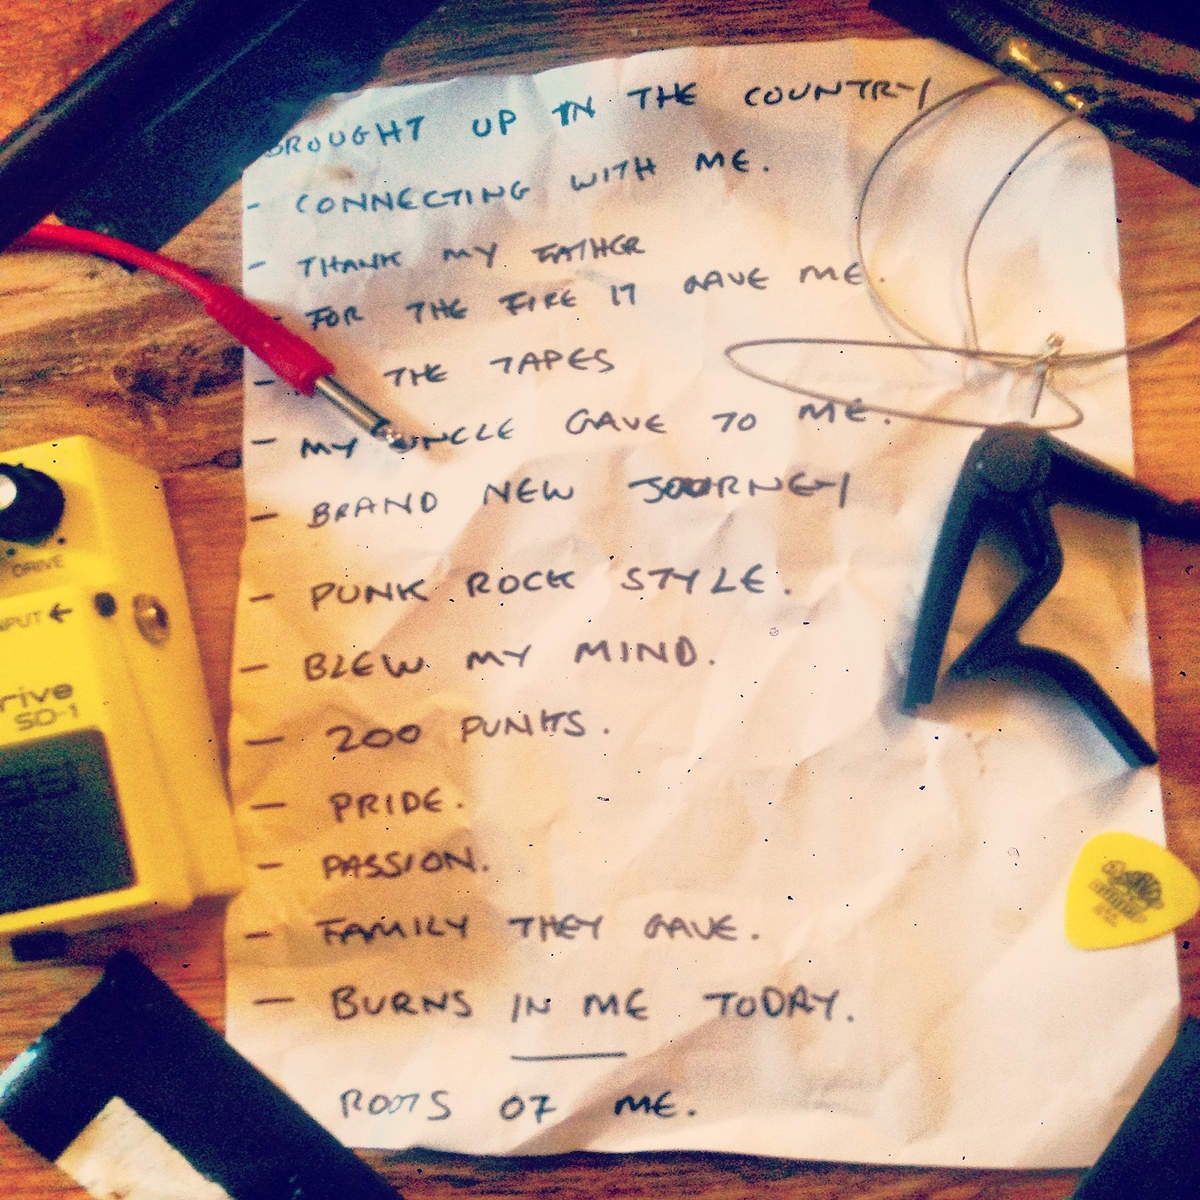 BROUGHT UP IN THE COUNTRY
- CONNECTING WITH ME.
- THANK MY FATHER
- FOR THE FIRE IT GAVE ME.
- THE TAPES
- MY UNCLE GAVE TO ME.
- BRAND NEW JOURNEY
- PUNK ROCK STYLE.
- BLEW MY MIND.
- 200 PUNKS.
- PRIDE.
- PASSION.
- FAMILY THEY GAVE.
- BURNS IN ME TODAY.
ROOTS OF ME.
DRIVE
INPUT ←
rive
SD-1